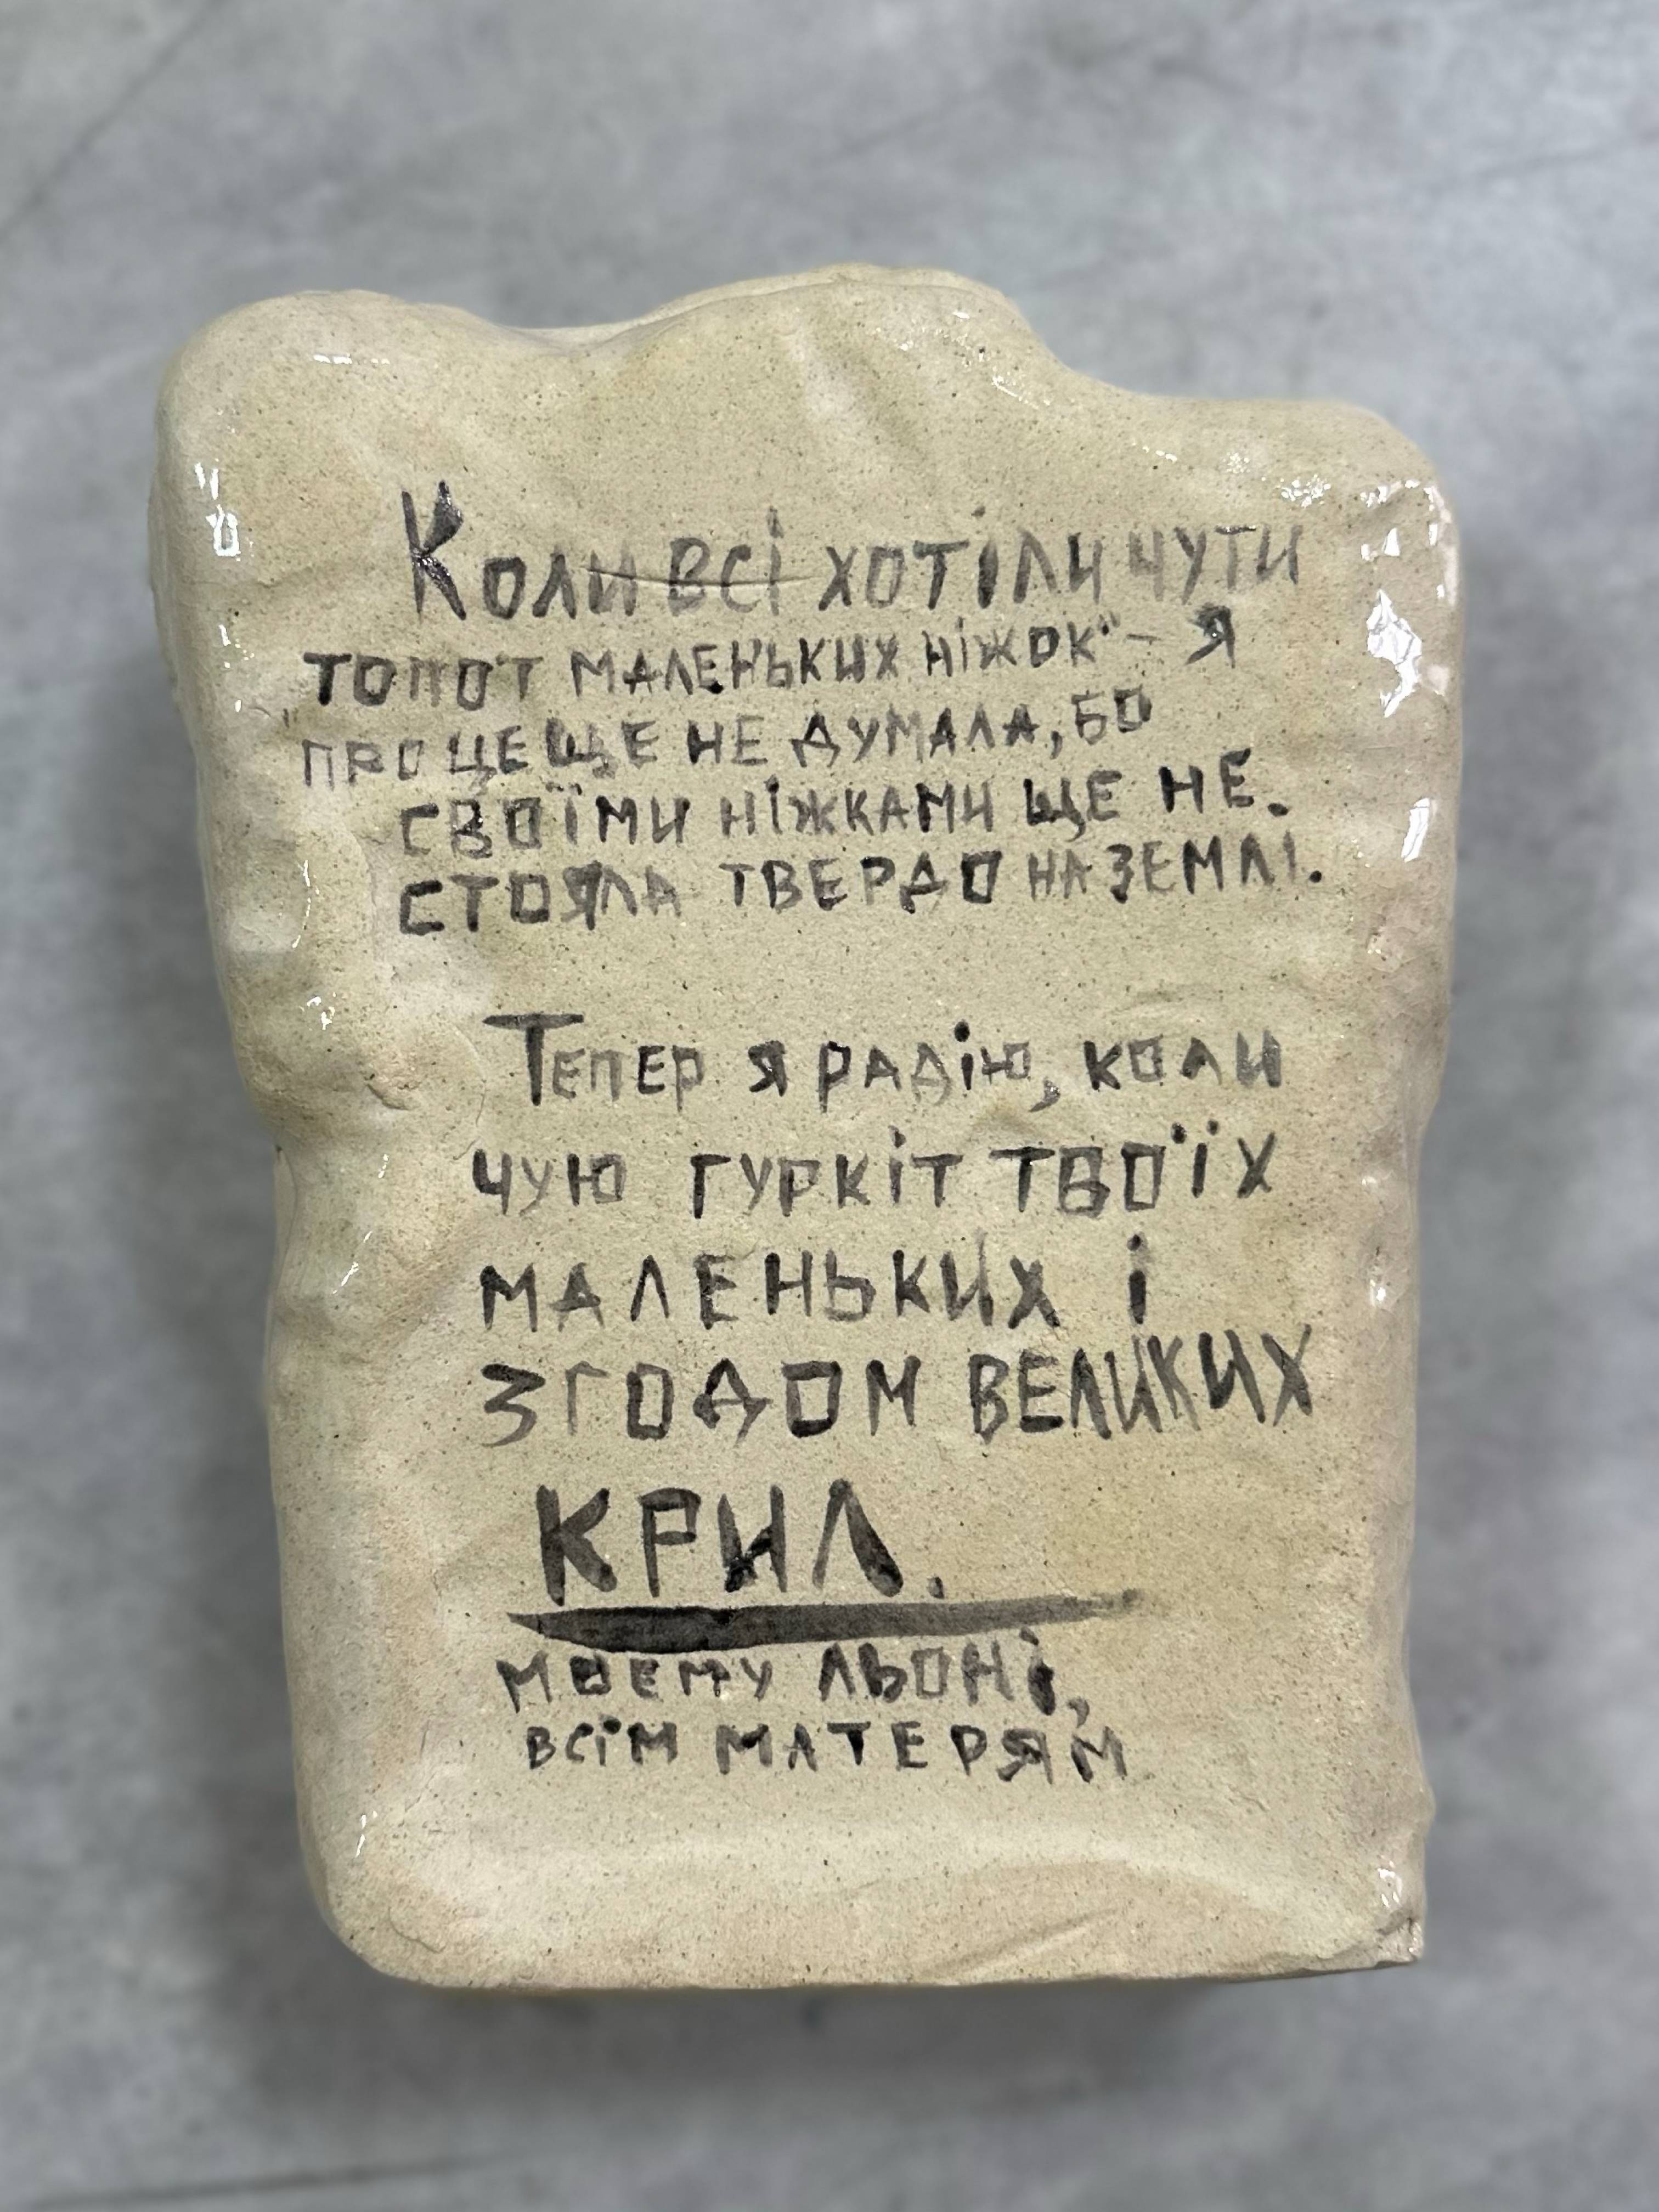 Коли всі хотіли чути
топот маленьких ніжок" – я
"про це ще не думала, бо
своїми ніжками ще не.
стояла твердо на землі.
Тепер я радію, коли
чую гуркіт твоїх
маленьких і
згодом великих
крил.
моєму Льоні,
всім матерям